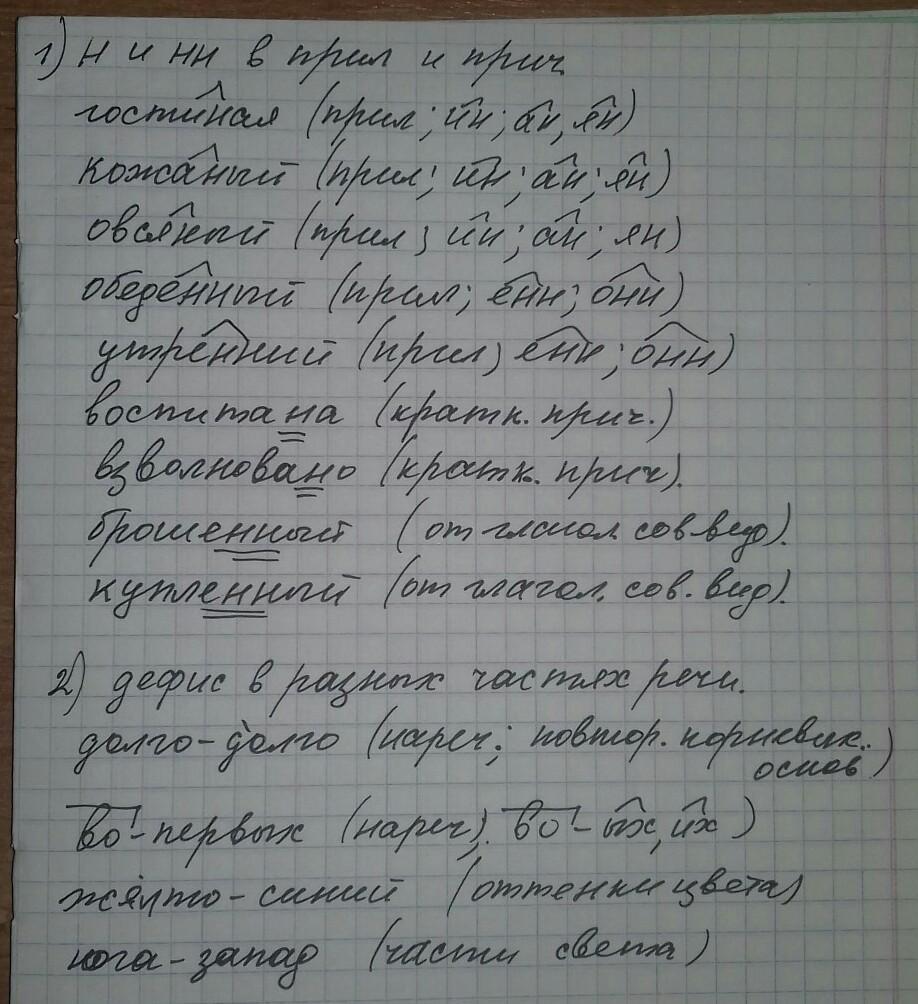 1) н и нн в прил и прич.
гостиная (прил; ин; ан, ян)
кожаный (прил; ин; ан; ян)
овсяный (прил; ин; ан; ян)
обеденный (прил; енн; онн)
утренний (прил; енн; онн)
воспитана (кратк. прич.)
взволновано (кратк. прич).
брошенный (от глагол. сов вида).
купленный (от глагол. сов. вид).
2) дефис в разных частях речи.
долго-долго (нареч; повтор. корневик.
основ)
во-первых (нареч), во- ых, их)
жёлто-синий (оттенки цвета)
юга-запад (части света)